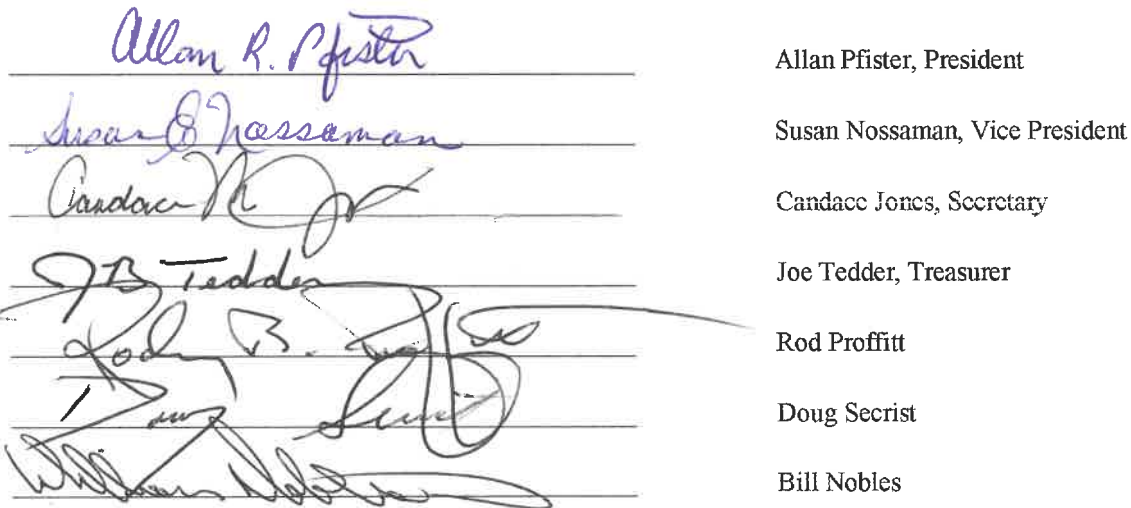 Allan R. Pfister Allan Pfister, President
Susan E Nossaman Susan Nossaman, Vice President
Candace M Candace Jones, Secretary
JB Tedder Joe Tedder, Treasurer
Rodny B. Rod Proffitt
Doug Secrist Doug Secrist
William Nobles Bill Nobles